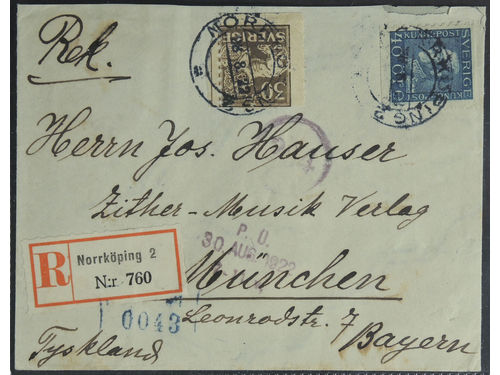 Rek.
NORR
30
SVERIGE
KUNGL. POST
SVERIGE
Herrn Jos. Hauser
Zither-Musik Verlag
P. U.
30 AUG. 1922
R
Norrköping 2
N:r 760
München
0043
Leonrodstr. 7
Tyskland
Bayern